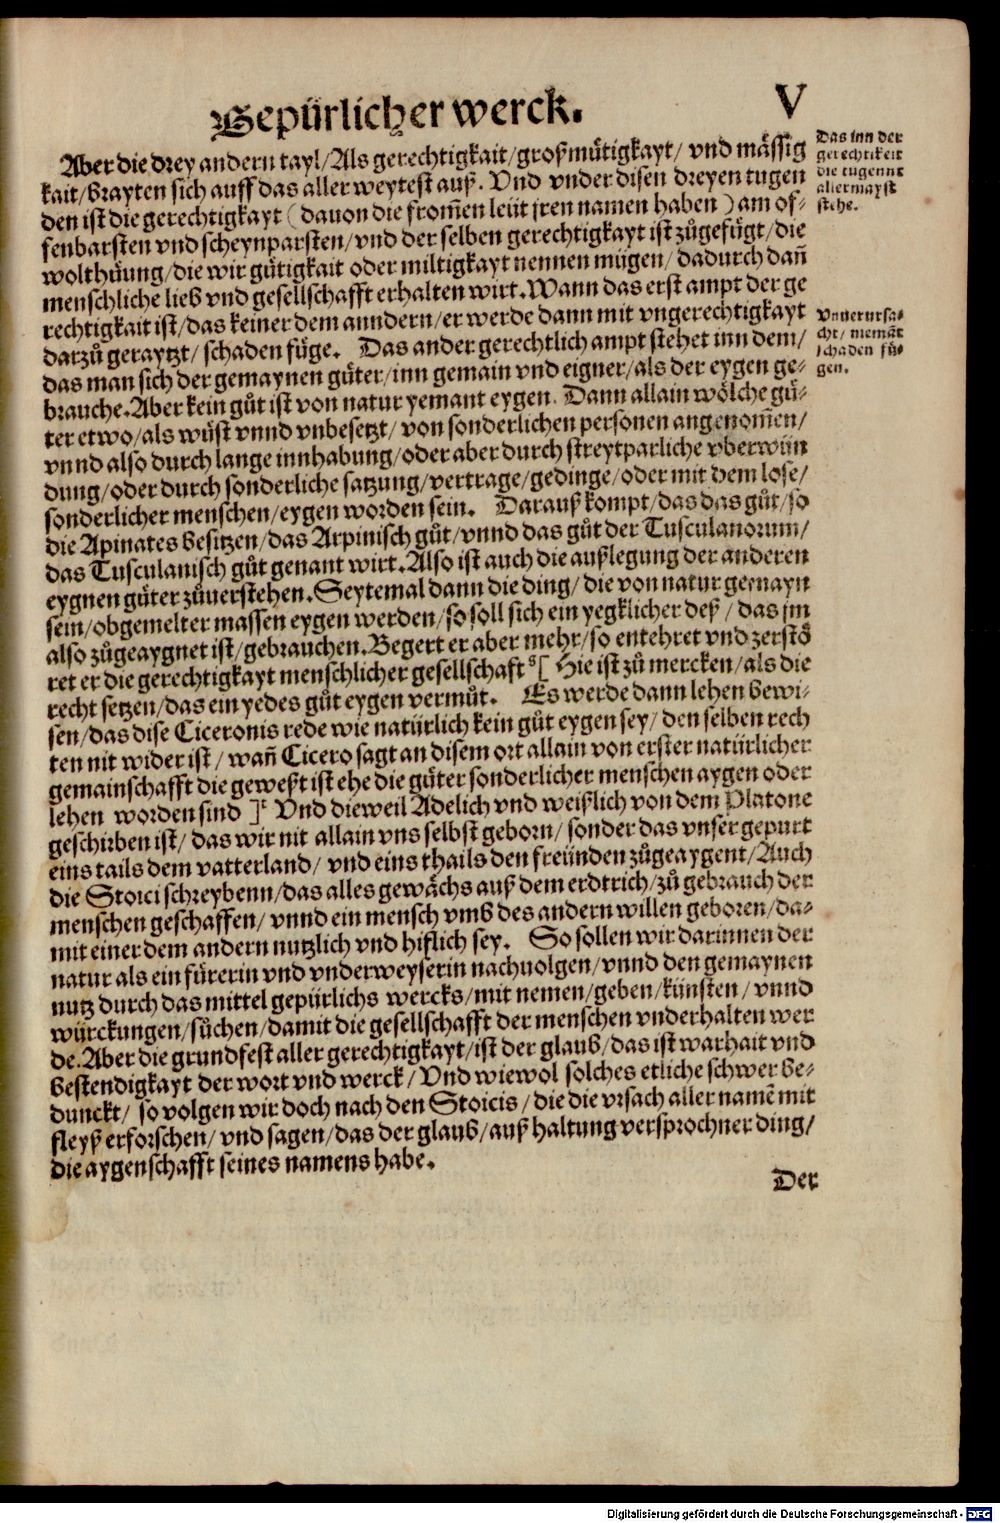 Gepürlicher werck. V
Aber die drey andern tayl/Als gerechtigkait/großmütigkayt/ vnd mässig
kait/brayten sich auff das aller weytest auß. Vnd vnder disen dreyen tugen
den ist die gerechtigkayt (dauon die from̃en leüt jren namen haben) am of-
fenbarsten vnd scheynparsten/vnd der selben gerechtigkayt ist zůgefügt/die
wolthüung/die wir gütigkait oder miltigkayt nennen mügen/dadurch dañ
menschliche lieb vnd gesellschafft erhalten wirt. Wann das erst ampt der ge
rechtigkait ist/das keiner dem anndern/er werde dann mit vngerechtigkayt
darzů geraytzt/schaden füge. Das ander gerechtlich ampt stehet inn dem/
das man sich der gemaynen güter/inn gemain vnd eigner/als der eygen ge-
brauche. Aber kein gůt ist von natur yemant eygen. Dann allain wölche gü-
ter etwo/als wüst vnnd vnbesetzt/ von sonderlichen personen angenom̃en/
vnnd also durch lange innhabung/oder aber durch streytparliche vberwün
dung/oder durch sonderliche satzung/vertrage/gedinge/oder mit dem lose/
sonderlicher menschen/eygen worden sein. Darauß kompt/das das gůt/so
die Apinates besitzen/das Arpinisch gůt/vnnd das gůt der Tusculanorum/
das Tusculanisch gůt genant wirt. Also ist auch die außlegung der anderen
eygnen güter zůuerstehen. Seytemal dann die ding/ die von natur gemayn
sein/obgemelter massen eygen werden/so soll sich ein yegklicher deß/ das jm
also zůgeaygnet ist/gebrauchen. Begert er aber mehr/so entehret vnd zerstö
ret er die gerechtigkayt menschlicher gesellschaft [ Hie ist zů mercken/als die
recht setzen/das ein yedes gůt eygen vermůt. Es werde dann lehen bewi-
sen/das dise Ciceronis rede wie natürlich kein gůt eygen sey/ den selben rech
ten nit wider ist/ wañ Cicero sagt an disem ort allain von erster natürlicher
gemainschafft die geweßt ist ehe die güter sonderlicher menschen aygen oder
lehen worden sind ] Vnd dieweil Adelich vnd weißlich von dem Platone
geschirben ist/ das wir nit allain vns selbst geborn/ sonder das vnser gepurt
eins tails dem vatterland/ vnd eins thails den freünden zůgeaygent/Auch
die Stoici schreybenn/das alles gewächs auß dem erdtrich/zů gebrauch der
menschen geschaffen/ vnnd ein mensch vmb des andern willen geboren/da-
mit einer dem andern nutzlich vnd hiflich sey. So sollen wir darinnen der
natur als ein fürerin vnd vnderweyserin nachuolgen/vnnd den gemaynen
nutz durch das mittel gepürlichs wercks/mit nemen/geben/künsten/ vnnd
würckungen/süchen/damit die gesellschafft der menschen vnderhalten wer
de. Aber die grundfest aller gerechtigkayt/ist der glaub/das ist warhait vnd
bestendigkayt der wort vnd werck/ Vnd wiewol solches etliche schwer be-
dunckt/ so volgen wir doch nach den Stoicis/die die vrsach aller namẽ mit
fleyß erforschen/ vnd sagen/das der glaub/auß haltung versprochner ding/
die aygenschafft seines namens habe.
Der
Das inn der
gerechtikeit
die tugennt
allermayst
stehe.
Vnuerursa-
cht/ niemãt
schaden fü-
gen.
Digitalisierung gefördert durch die Deutsche Forschungsgemeinschaft - DFG